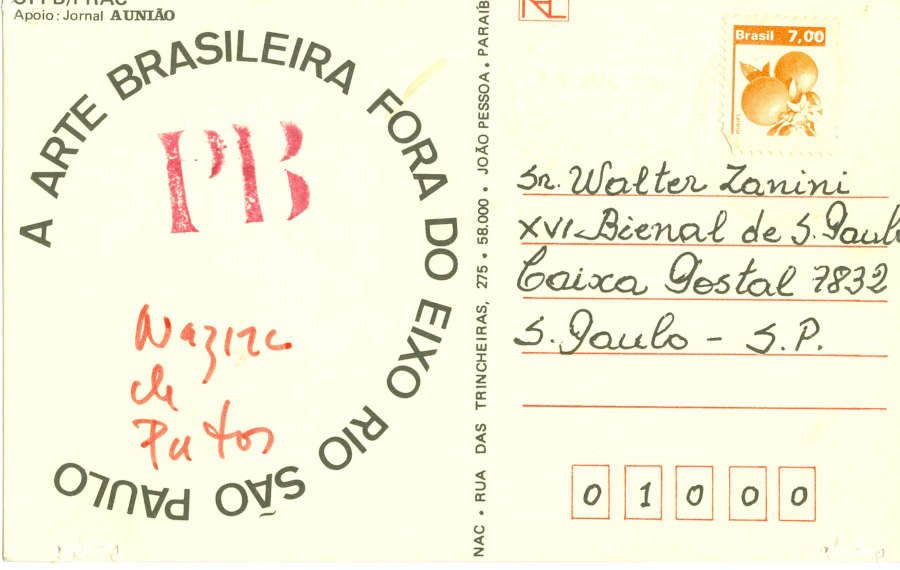 UFPB/PRAC
Apoio: Jornal A UNIÃO
A ARTE BRASILEIRA FORA DO EIXO RIO SÃO PAULO
PB
de
Patos
NAC • RUA DAS TRINCHEIRAS, 275 • 58.000 • JOÃO PESSOA • PARAIB
Brasil 7,00
Sr. Walter Zanini
XVI Bienal de S. Paulo
Caixa Postal 7832
S. Paulo - S.P.
0 1 0 0 0